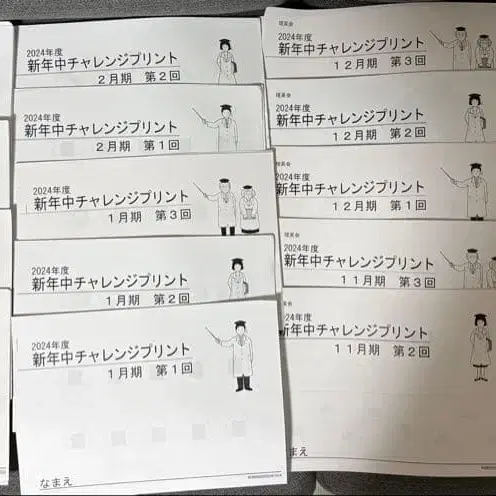 2024年度
新年中チャレンジプリント
2月期 第2回
2024年度
新年中チャレンジプリント
2月期 第1回
2024年度
新年中チャレンジプリント
1月期 第3回
2024年度
新年中チャレンジプリント
1月期 第2回
2024年度
新年中チャレンジプリント
1月期 第1回
なまえ
理英会
2024年度
新年中チャレンジプリント
12月期 第3回
理英会
2024年度
新年中チャレンジプリント
12月期 第2回
理英会
2024年度
新年中チャレンジプリント
12月期 第1回
理英会
2024年度
新年中チャレンジプリント
11月期 第3回
英会
24年度
年中チャレンジプリント
11月期 第2回
まえ